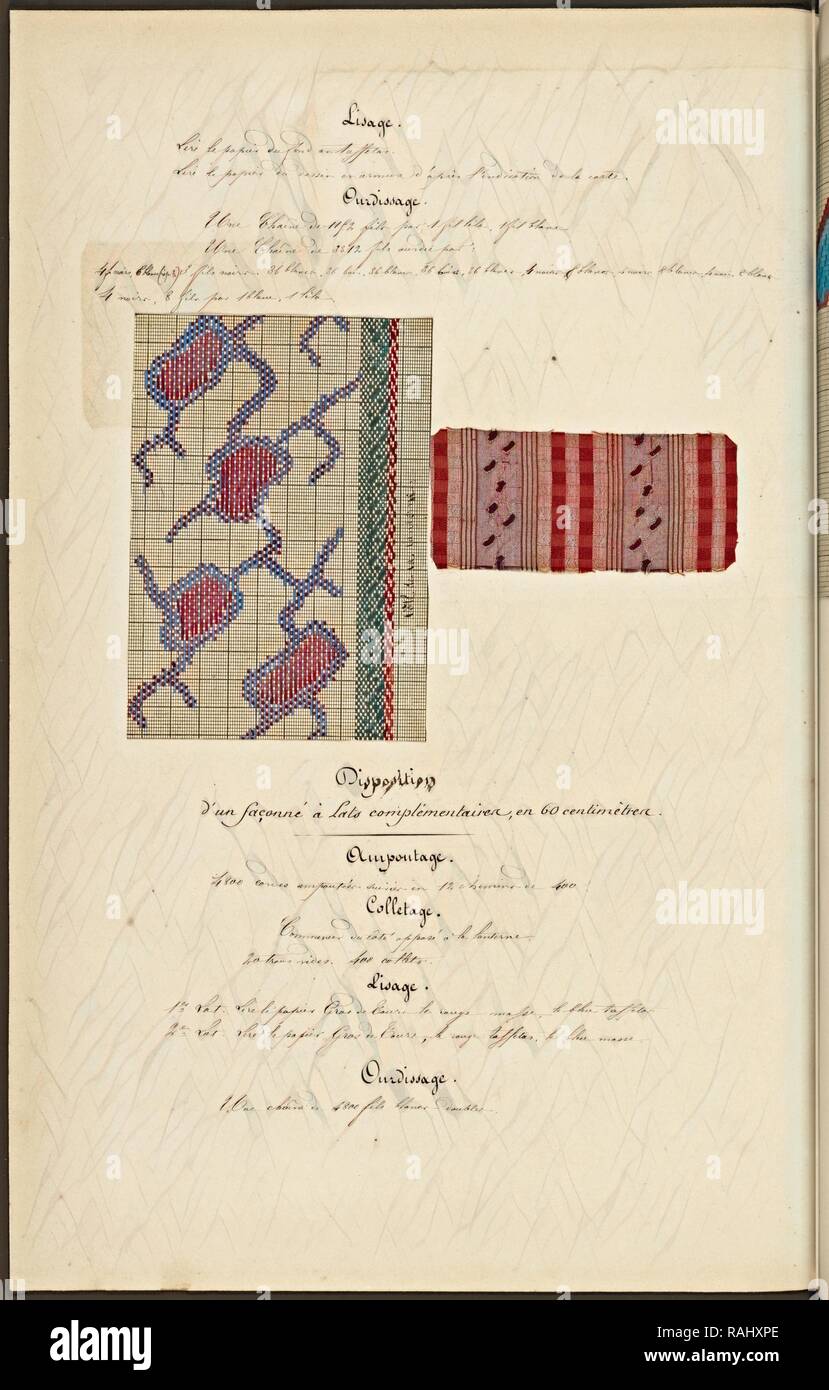 Lisage.
Lire le papier du fond en taffetas.
Lire le papier du dessin en armure d'après l'indication de la carte.
Ourdissage.
Une Chaîne de fils par 1 fil lila, 1 fil blanc
Une Chaîne de 3272 fils ourdie par:
fils noirs. 36 blancs, 36 36 blancs, 36 36 blancs, 4 noirs, 8 blancs, 4 noirs, 8 blancs, 4 noirs, 8 blancs
4 noirs, 8 fils par 1 blanc, 1 lila
Disposition
d'un façonné à Lats complémentaires, en 60 centimètres.
Ampoutage.
4800 cordes empoutées suivies en 12 chemins de 400
Colletage.
Commencer du côté opposé à la lanterne
20 trous vides. 400 collets.
Lisage.
1er Lat. Lire le papier Gros de Tours le rouge masse, le bleu taffetas
2me Lat. Lire le papier Gros de Tours, le rouge taffetas, le bleu masse.
Ourdissage.
Une chaîne de 4800 fils blancs doubles.
alamy
alamy stock photo
Image ID: RAJXPE
www.alamy.com